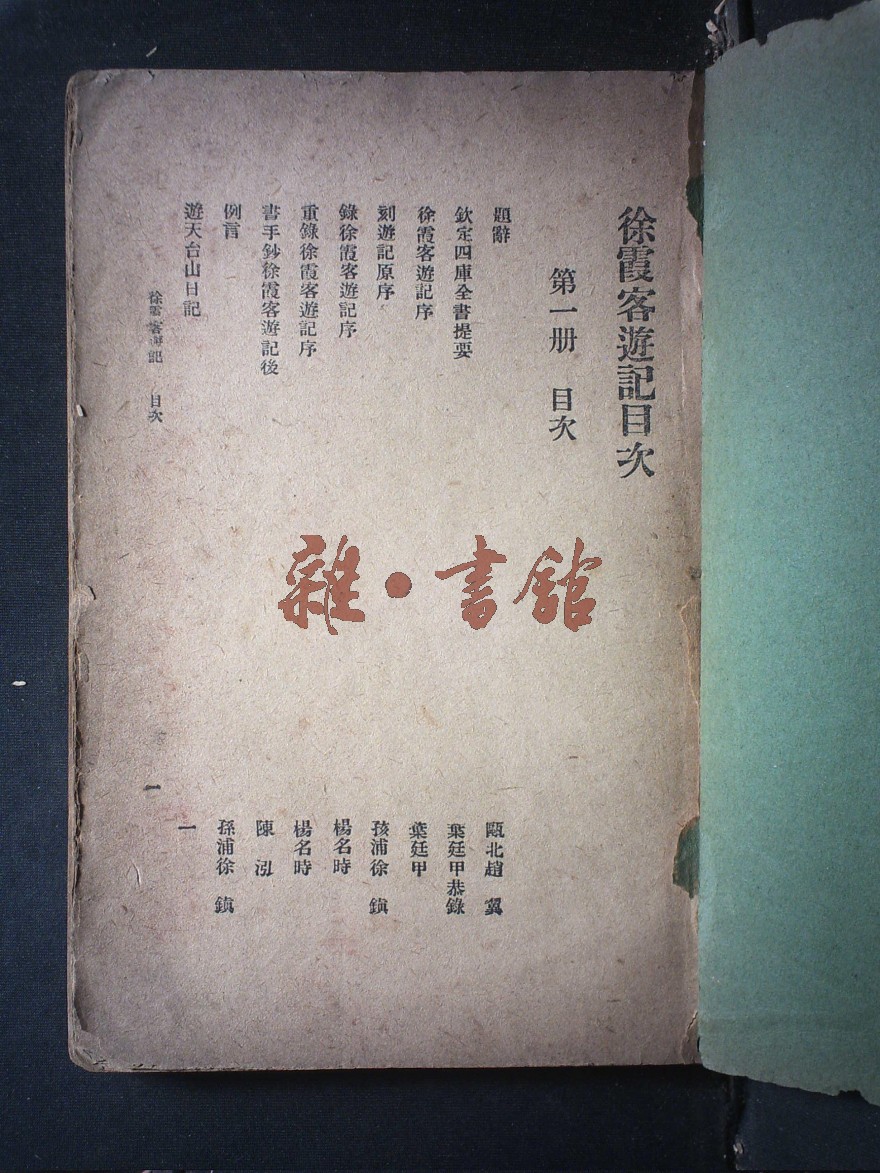 徐霞客遊記目次
第一册 目次
題辭 甌北趙 翼
欽定四庫全書提要 葉廷甲恭錄
徐霞客遊記序 葉廷甲
刻遊記原序 孩浦徐 鎮
錄徐霞客遊記序 楊名時
重錄徐霞客遊記序 楊名時
書手鈔徐霞客遊記後 陳 泓
例言 孫浦徐 鎮
遊天台山日記 一
徐霞客遊記 目次 一
雜·書館